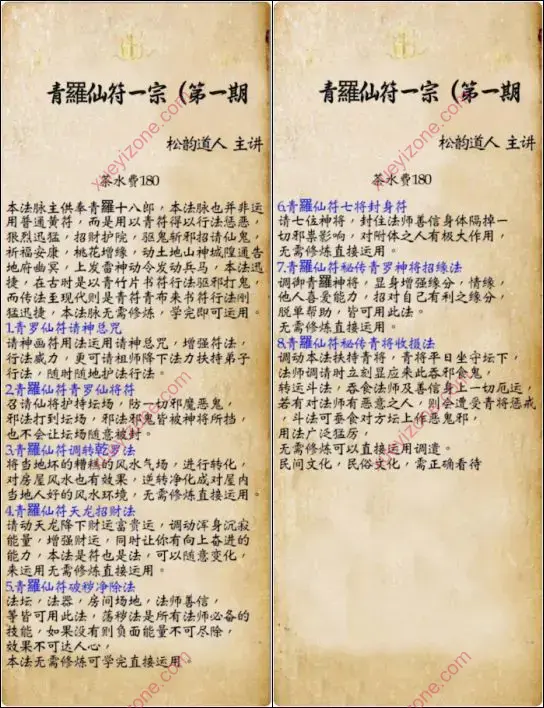 青羅仙符一宗（第一期
松韵道人 主讲
茶水费180
本法脉主供奉青羅十八郎，本法脉也并非运
用普通黄符，而是用以青符得以行法惩恶，
狠烈迅猛，招财护院，驱鬼斩邪招请仙鬼，
祈福安康，桃花增缘，动土地山神城隍通告
地府幽冥，上发雷神动令发动兵马，本法迅
捷，在古时是以青竹片书符行法驱邪打鬼，
而传法至现代则是青符青布来书符行法刚
猛迅捷，本法脉无需修炼，学完即可运用。
1.青罗仙符请神总咒
请神画符用法运用请神总咒，增强符法，
行法威力，更可请祖师降下法力扶持弟子
行法，随时随地护法行法。
2.青羅仙符青罗仙将符
召请仙将护持坛场，防一切邪魔恶鬼，
邪法打到坛场，邪法邪鬼皆被神将所挡，
也不会让坛场随意被封。
3.青羅仙符调转乾罗法
将当地坏的糟糕的风水气场，进行转化，
对房屋风水也有效果，逆转净化成对屋内
当地人好的风水环境，无需修炼直接运用。
4.青羅仙符天龙招财法
请动天龙降下财运富贵运，调动浑身沉寂
能量，增强财运，同时让你有向上奋进的
能力，本法是符也是法，可以随意变化，
来运用无需修炼直接运用。
5.青羅仙符破秽净除法
法坛，法器，房间场地，法师善信，
等皆可用此法，荡秽法是所有法师必备的
技能，如果没有则负面能量不可尽除，
效果不可达人心，
本法无需修炼可学完直接运用。
青羅仙符一宗（第一期
松韵道人 主讲
茶水费180
6.青羅仙符七将封身符
请七位神将，封住法师善信身体隔掉一
切邪祟影响，对附体之人有极大作用，
无需修炼直接运用。
7.青羅仙符秘传青罗神将招缘法
调御青羅神将，显身增强缘分，情缘，
他人喜爱能力，招对自己有利之缘分，
脱单帮助，皆可用此法。
无需修炼直接运用。
8.青羅仙符秘传青将收摄法
调动本法扶持青将，青将平日坐守坛下，
法师调请时立刻显应来此吞邪食鬼，
转运斗法，吞食法师及善信身上一切厄运，
若有对法师有恶意之人，则会遭受青将惩戒
，斗法可蚕食对方坛上作恶鬼邪，
用法广泛猛厉，
无需修炼可以直接运用调遣。
民间文化，民俗文化，需正确看待
xueyizone.com
xueyizone.com
xueyizone.com
xueyizone.com
xueyizone.com
xueyizone.com